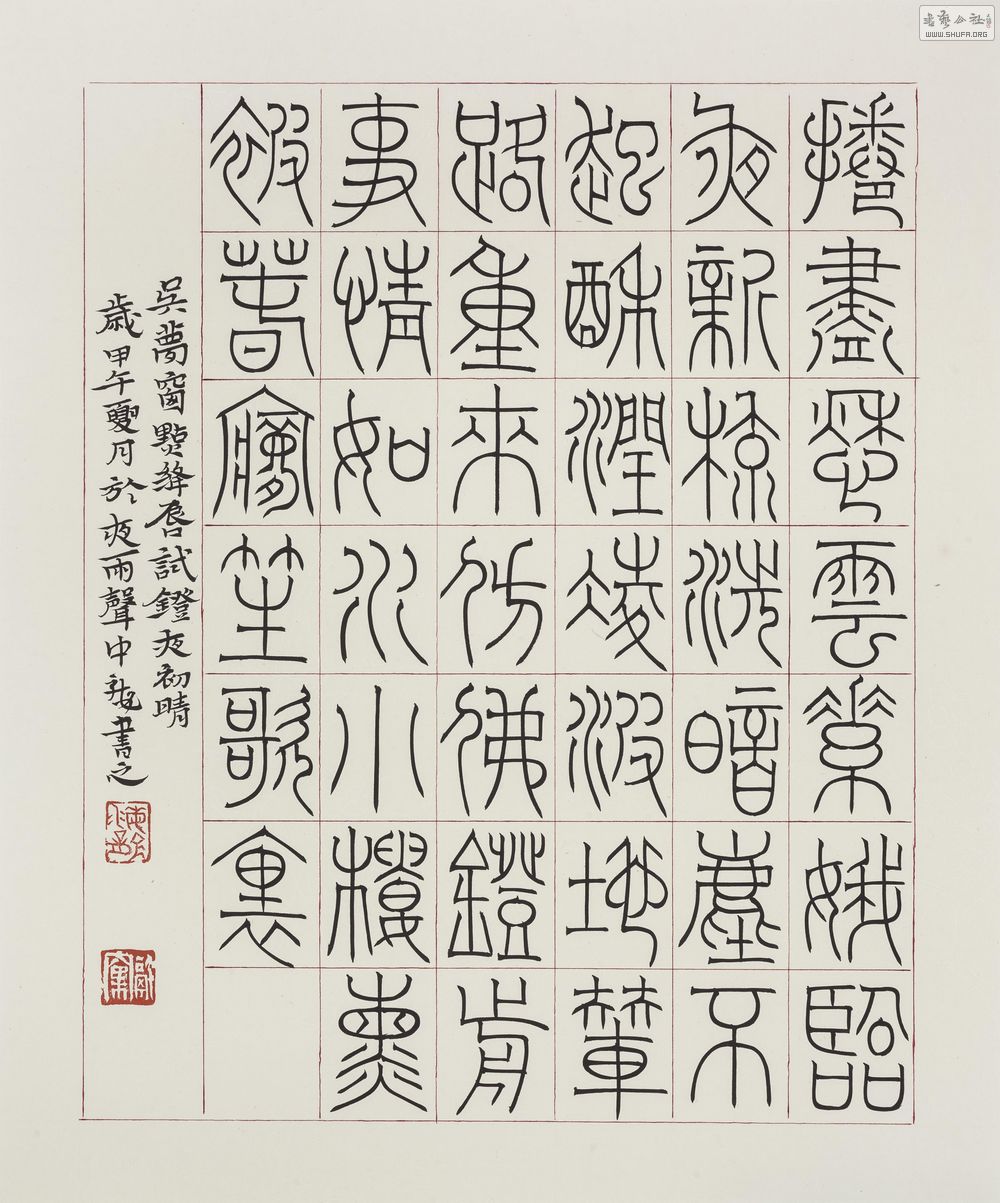 捲盡愁雲素娥臨
夜新梳洗暗塵不
起酥潤凌波地輦
路重來仿佛鐙前
事情如水小樓熏
被春夢笙歌裏
吳夢窗點絳唇試鐙夜初晴
歲甲午夏月於夜雨聲中書之
书藝公社
WWW.SHUFA.ORG